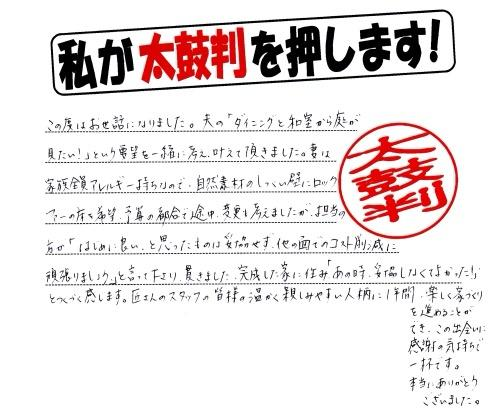 私が太鼓判を押します!
この度はお世話になりました。夫の「ダイニングと和室から庭が
見たい!」という要望を一緒に考え、叶えて頂きました。妻は
家族全員アレルギー持ちなので、自然素材のしっくい壁にロック
の床を希望。予算の都合で途中、変更も考えましたが、担当の
方が「はじめに良い、と思ったものは妥協せず、他の面でのコスト削減に
頑張りましょう」と言って下さり、貫きました。完成した家に住み「あの時、妥協しなくてよかった!」
とつくづく感じます。匠さんのスタッフの皆様の温かく親しみやすい人柄に1年間、楽しく家づくり
を進めることが
でき、この出会いに
感謝の気持ちで
一杯です。
本当にありがとう
ございました。
太鼓判